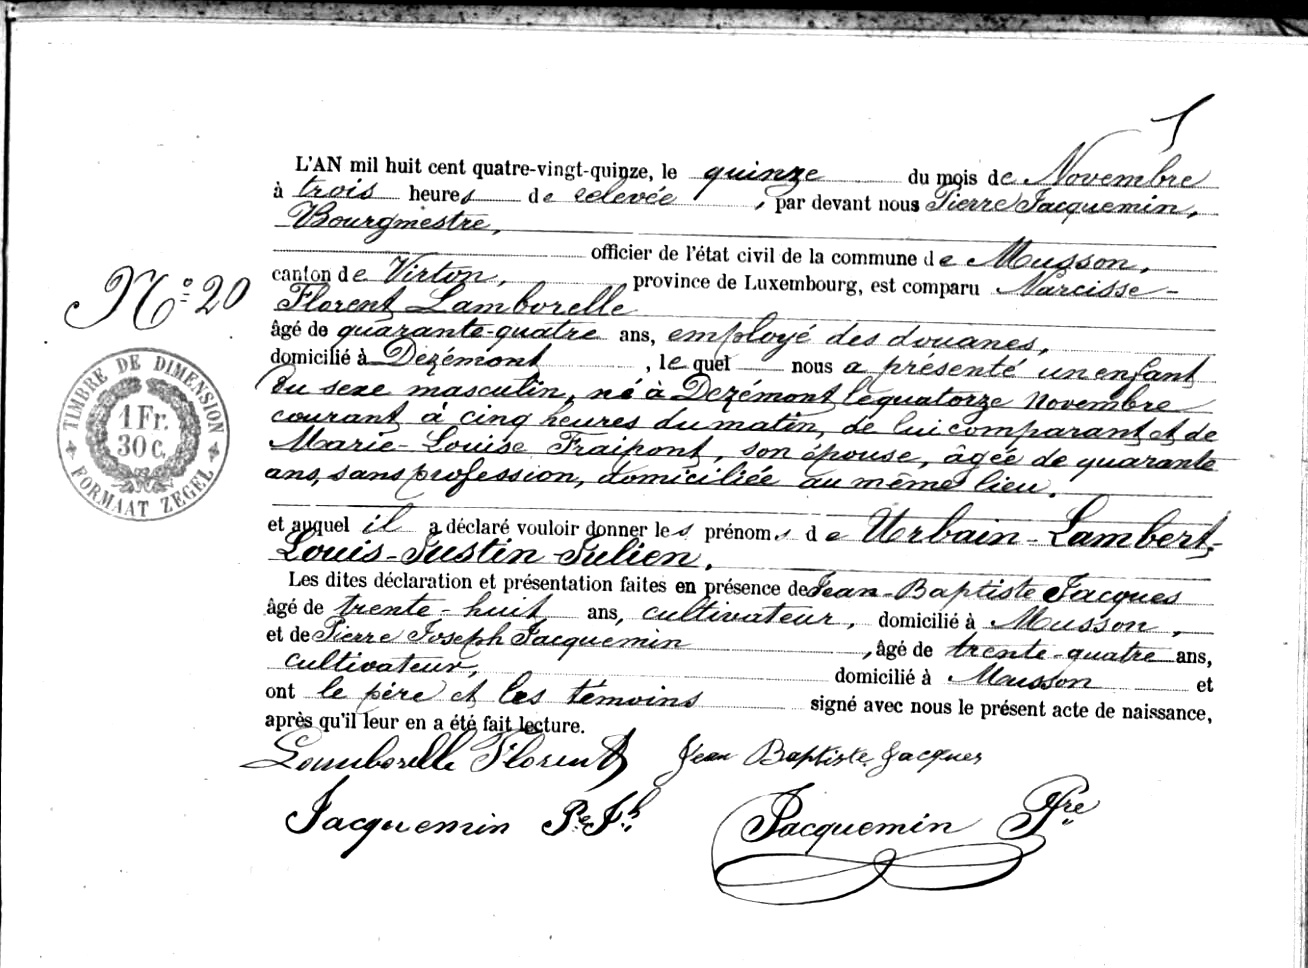 L'AN mil huit cent quatre-vingt-quinze, le quinze du mois de Novembre
à trois heures de relevée, par devant nous Pierre Jacquemin,
Bourgmestre,
officier de l'état civil de la commune de Musson,
canton de Virton, province de Luxembourg, est comparu Narcisse-
Florent Lamborelle
âgé de quarante-quatre ans, employé des douanes,
domicilié à Dezémont, le quel nous a présenté un enfant
du sexe masculin, né à Dezémont le quatorze Novembre
courant à cinq heures du matin, de lui comparant et de
Marie-Louise Fraipont, son épouse, âgée de quarante
ans, sans profession, domiciliée au même lieu.
et auquel il a déclaré vouloir donner les prénoms de Urbain-Lambert-
Louis-Justin Julien.
Les dites déclaration et présentation faites en présence de Jean-Baptiste Jacques
âgé de trente-huit ans, cultivateur, domicilié à Musson,
et de Pierre Joseph Jacquemin, âgé de trente-quatre ans,
cultivateur, domicilié à Musson et
ont le père et les témoins signé avec nous le présent acte de naissance,
après qu'il leur en a été fait lecture.
Lamborelle Florent Jean Baptiste Jacques
Jacquemin Pre Jh Jacquemin Pre
No 20
TIMBRE DE DIMENSION
1 Fr.
30 c.
FORMAAT ZEGEL